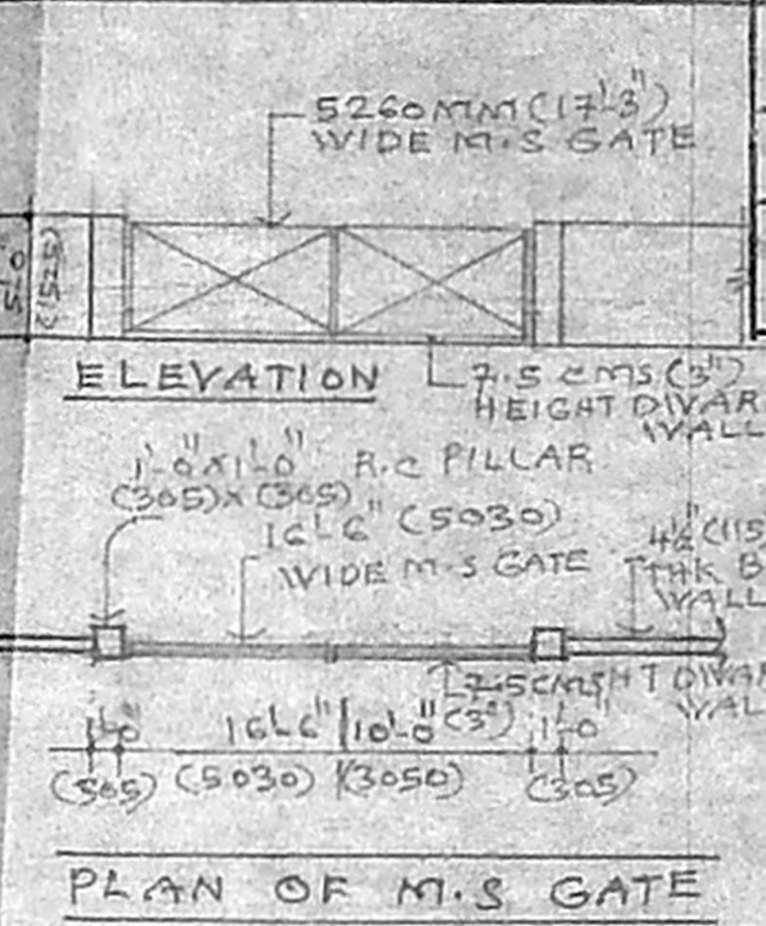 5260MM (17'-3")
WIDE M.S GATE
5'-0"
(1525)
ELEVATION
7.5 CMS (3")
HEIGHT DWAR
WALL
1'-0"X1'-0" R.C PILLAR
(305)X(305)
16'-6" (5030)
WIDE M.S GATE
4½" (115
THK B
WALL
7.5CMS HT DWAR
(3") WAL
1'-0" 16'-6" 10'-0" 1'-0"
(305) (5030) (3050) (305)
PLAN OF M.S GATE